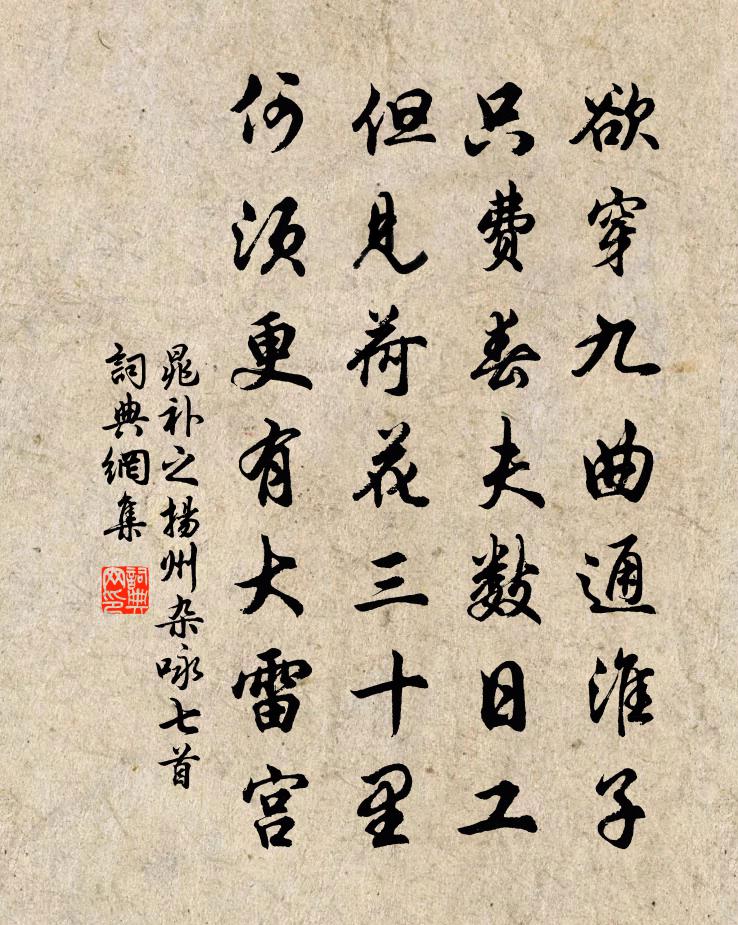 欲穿九曲通淮子
只费春夫数日工
但见荷花三十里
何须更有大雷宫
晁补之扬州杂咏七首
詞典網集
詞典網印